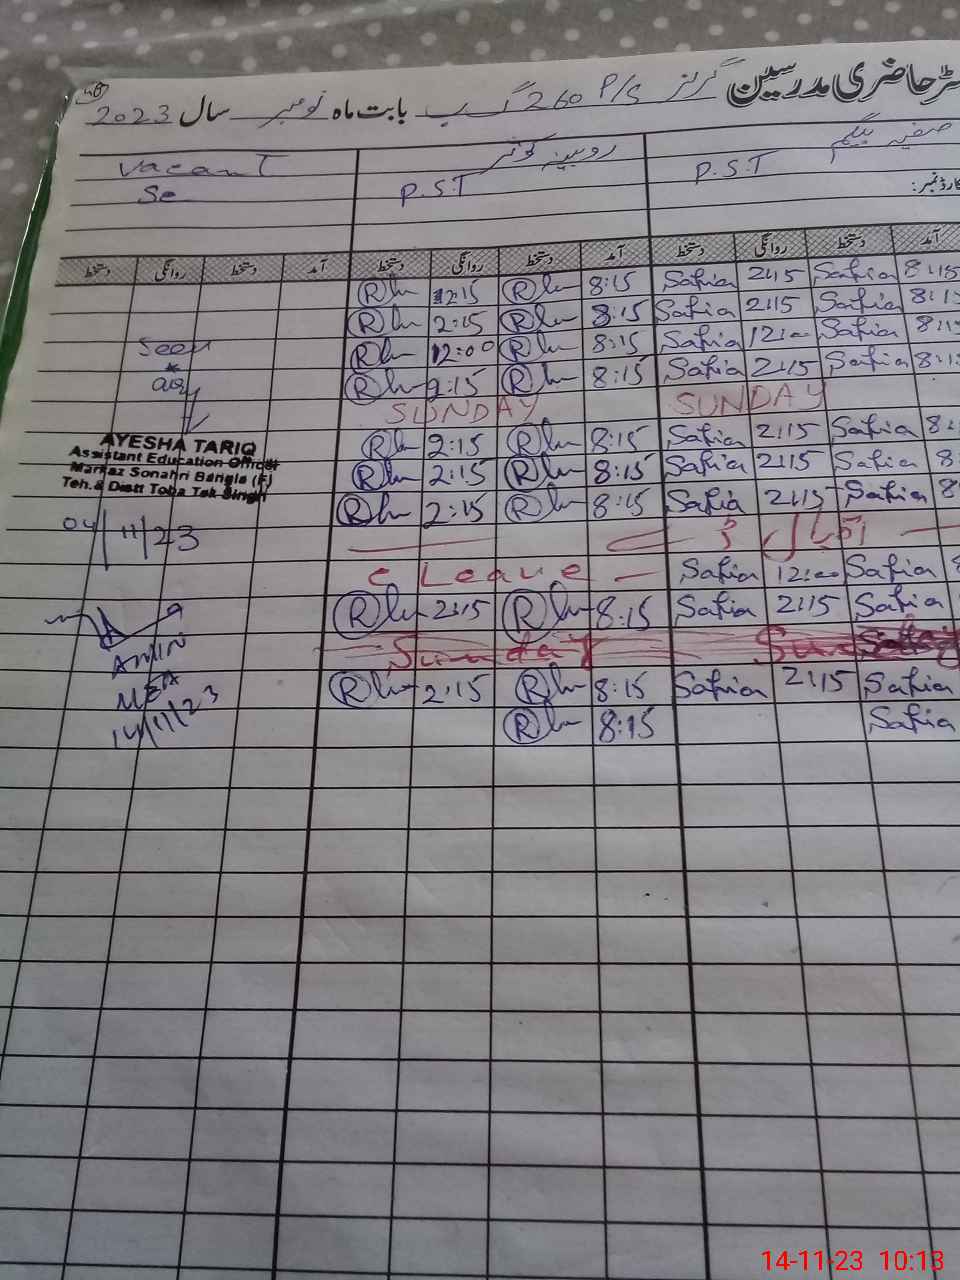 رجسٹر حاضری مدرسین گرلز P/S 260 گ ب بابت ماہ نومبر سال 2023
صفیہ بیگم روبینہ کوثر Vacant
P.S.T P.S.T Se
کارڈ نمبر:
آمد دستخط روانگی دستخط آمد دستخط روانگی دستخط آمد دستخط روانگی دستخط
8:15 Safia 2:15 Safia 8:15 2:15
8:15 Safia 2:15 Safia 8:15 2:15
8:15 Safia 12:00 Safia 8:15 12:00 Seen
8:15 Safia 2:15 Safia 8:15 2:15
SUNDAY SUNDAY
Safia 2:15 Safia 8:15 2:15
Safia 2:15 Safia 8:15 2:15
Safia 2:15 Safia 8:15 2:15
AYESHA TARIQ
Assistant Education Officer
Markaz Sonahri Bangla (F)
Teh.& Distt Toba Tek Singh
04/11/23
اقبال ڈے
Safia 12:00 Safia c Leave
Safia 2:15 Safia 8:15 2:15
Sunday
Safia 2:15 Safia 8:15 2:15
Safia 8:15
AMIN
MEA
14/11/23
14-11-23 10:13